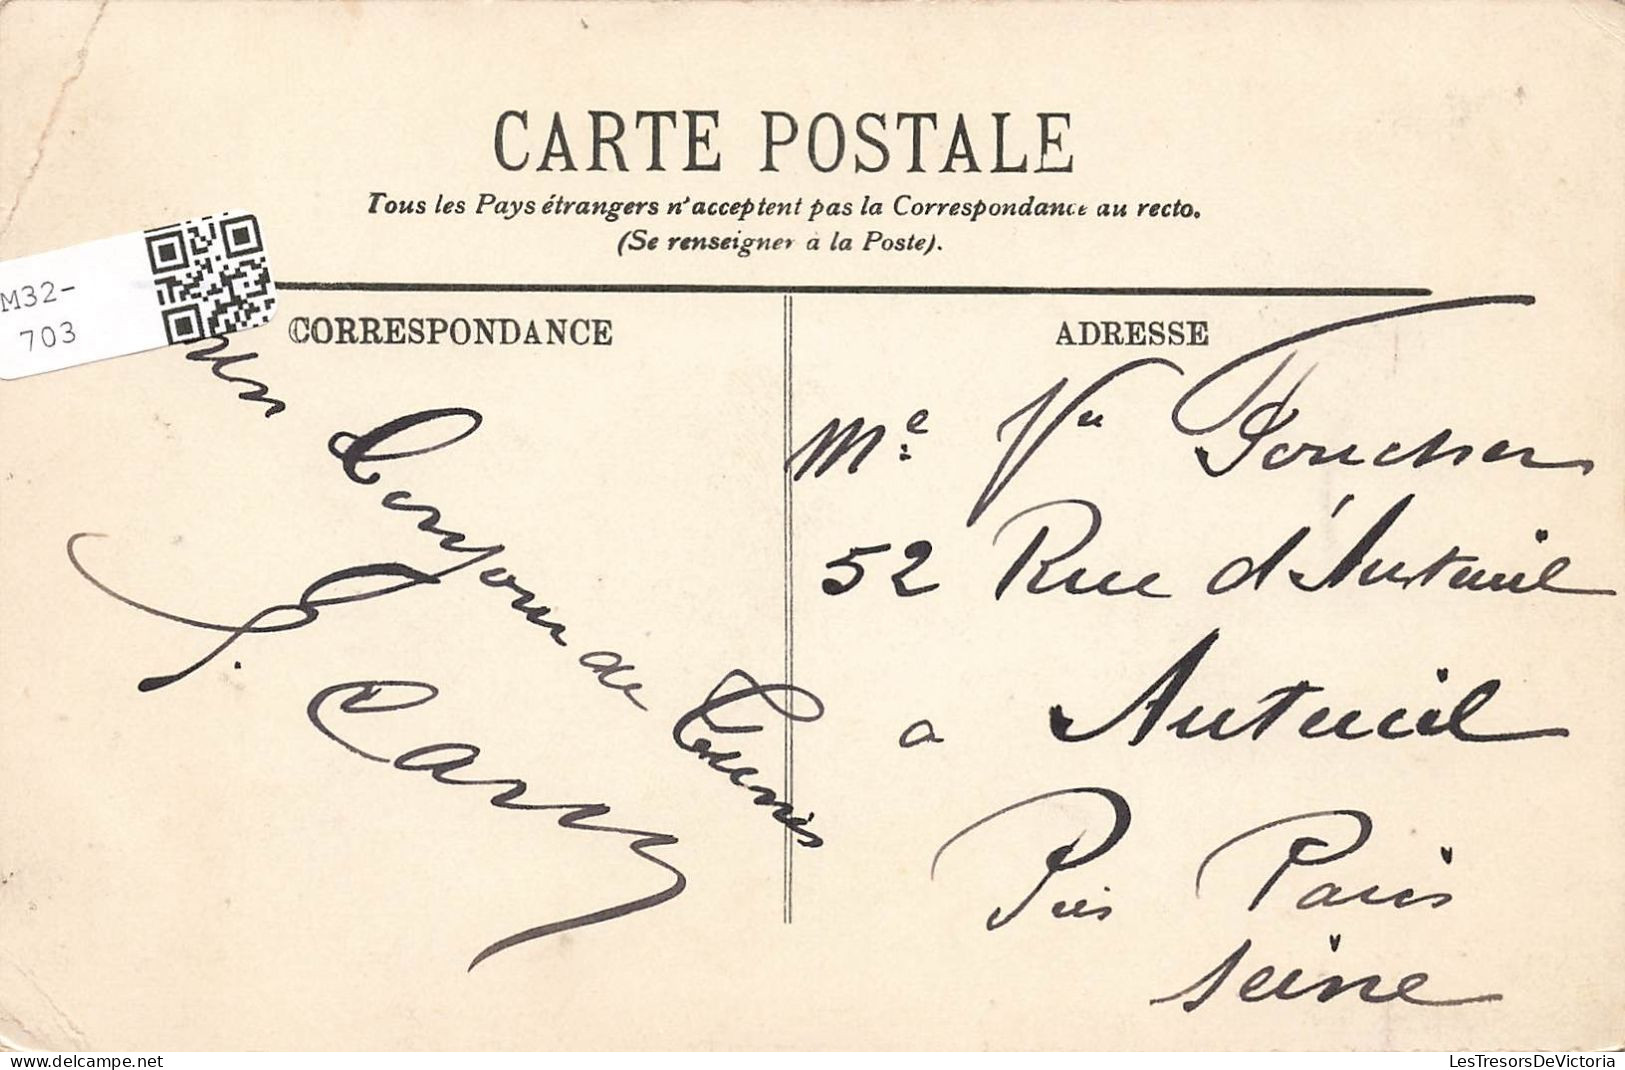 CARTE POSTALE
Tous les Pays étrangers n'acceptent pas la Correspondance au recto.
(Se renseigner à la Poste).
M32-
703
CORRESPONDANCE
un
Bonjour de Tunis
Carry
ADRESSE
Me Vve Foucher
52 Rue d'Auteuil
a Auteuil
Près Paris
Seine
delcampe.net
LesTresorsDeVictoria